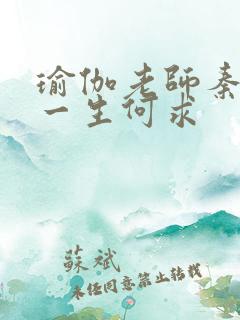 瑜伽老師秦
一生何求
蘇斌
未任同意禁止转载